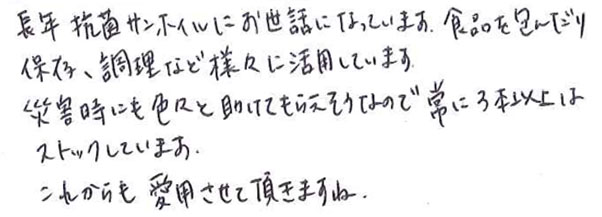 長年 抗菌サンホイルにお世話になっています。食品を包んだり
保存、調理など様々に活用しています
災害時にも色々と助けてもらえそうなので常に3本以上は
ストックしています。
これからも愛用させて頂きますね.